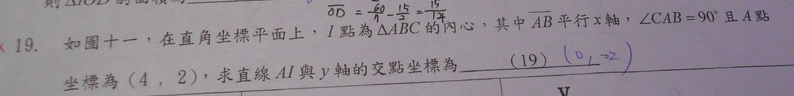 則△IOD的面積為
OD = 60/9 - 15/2 = 15/17
19. 如圖十一，在直角坐標平面上，I點為△ABC的內心，其中AB平行x軸，∠CAB=90°且A點
坐標為(4，2)，求直線AI與y軸的交點坐標為 (19) (0，-2)